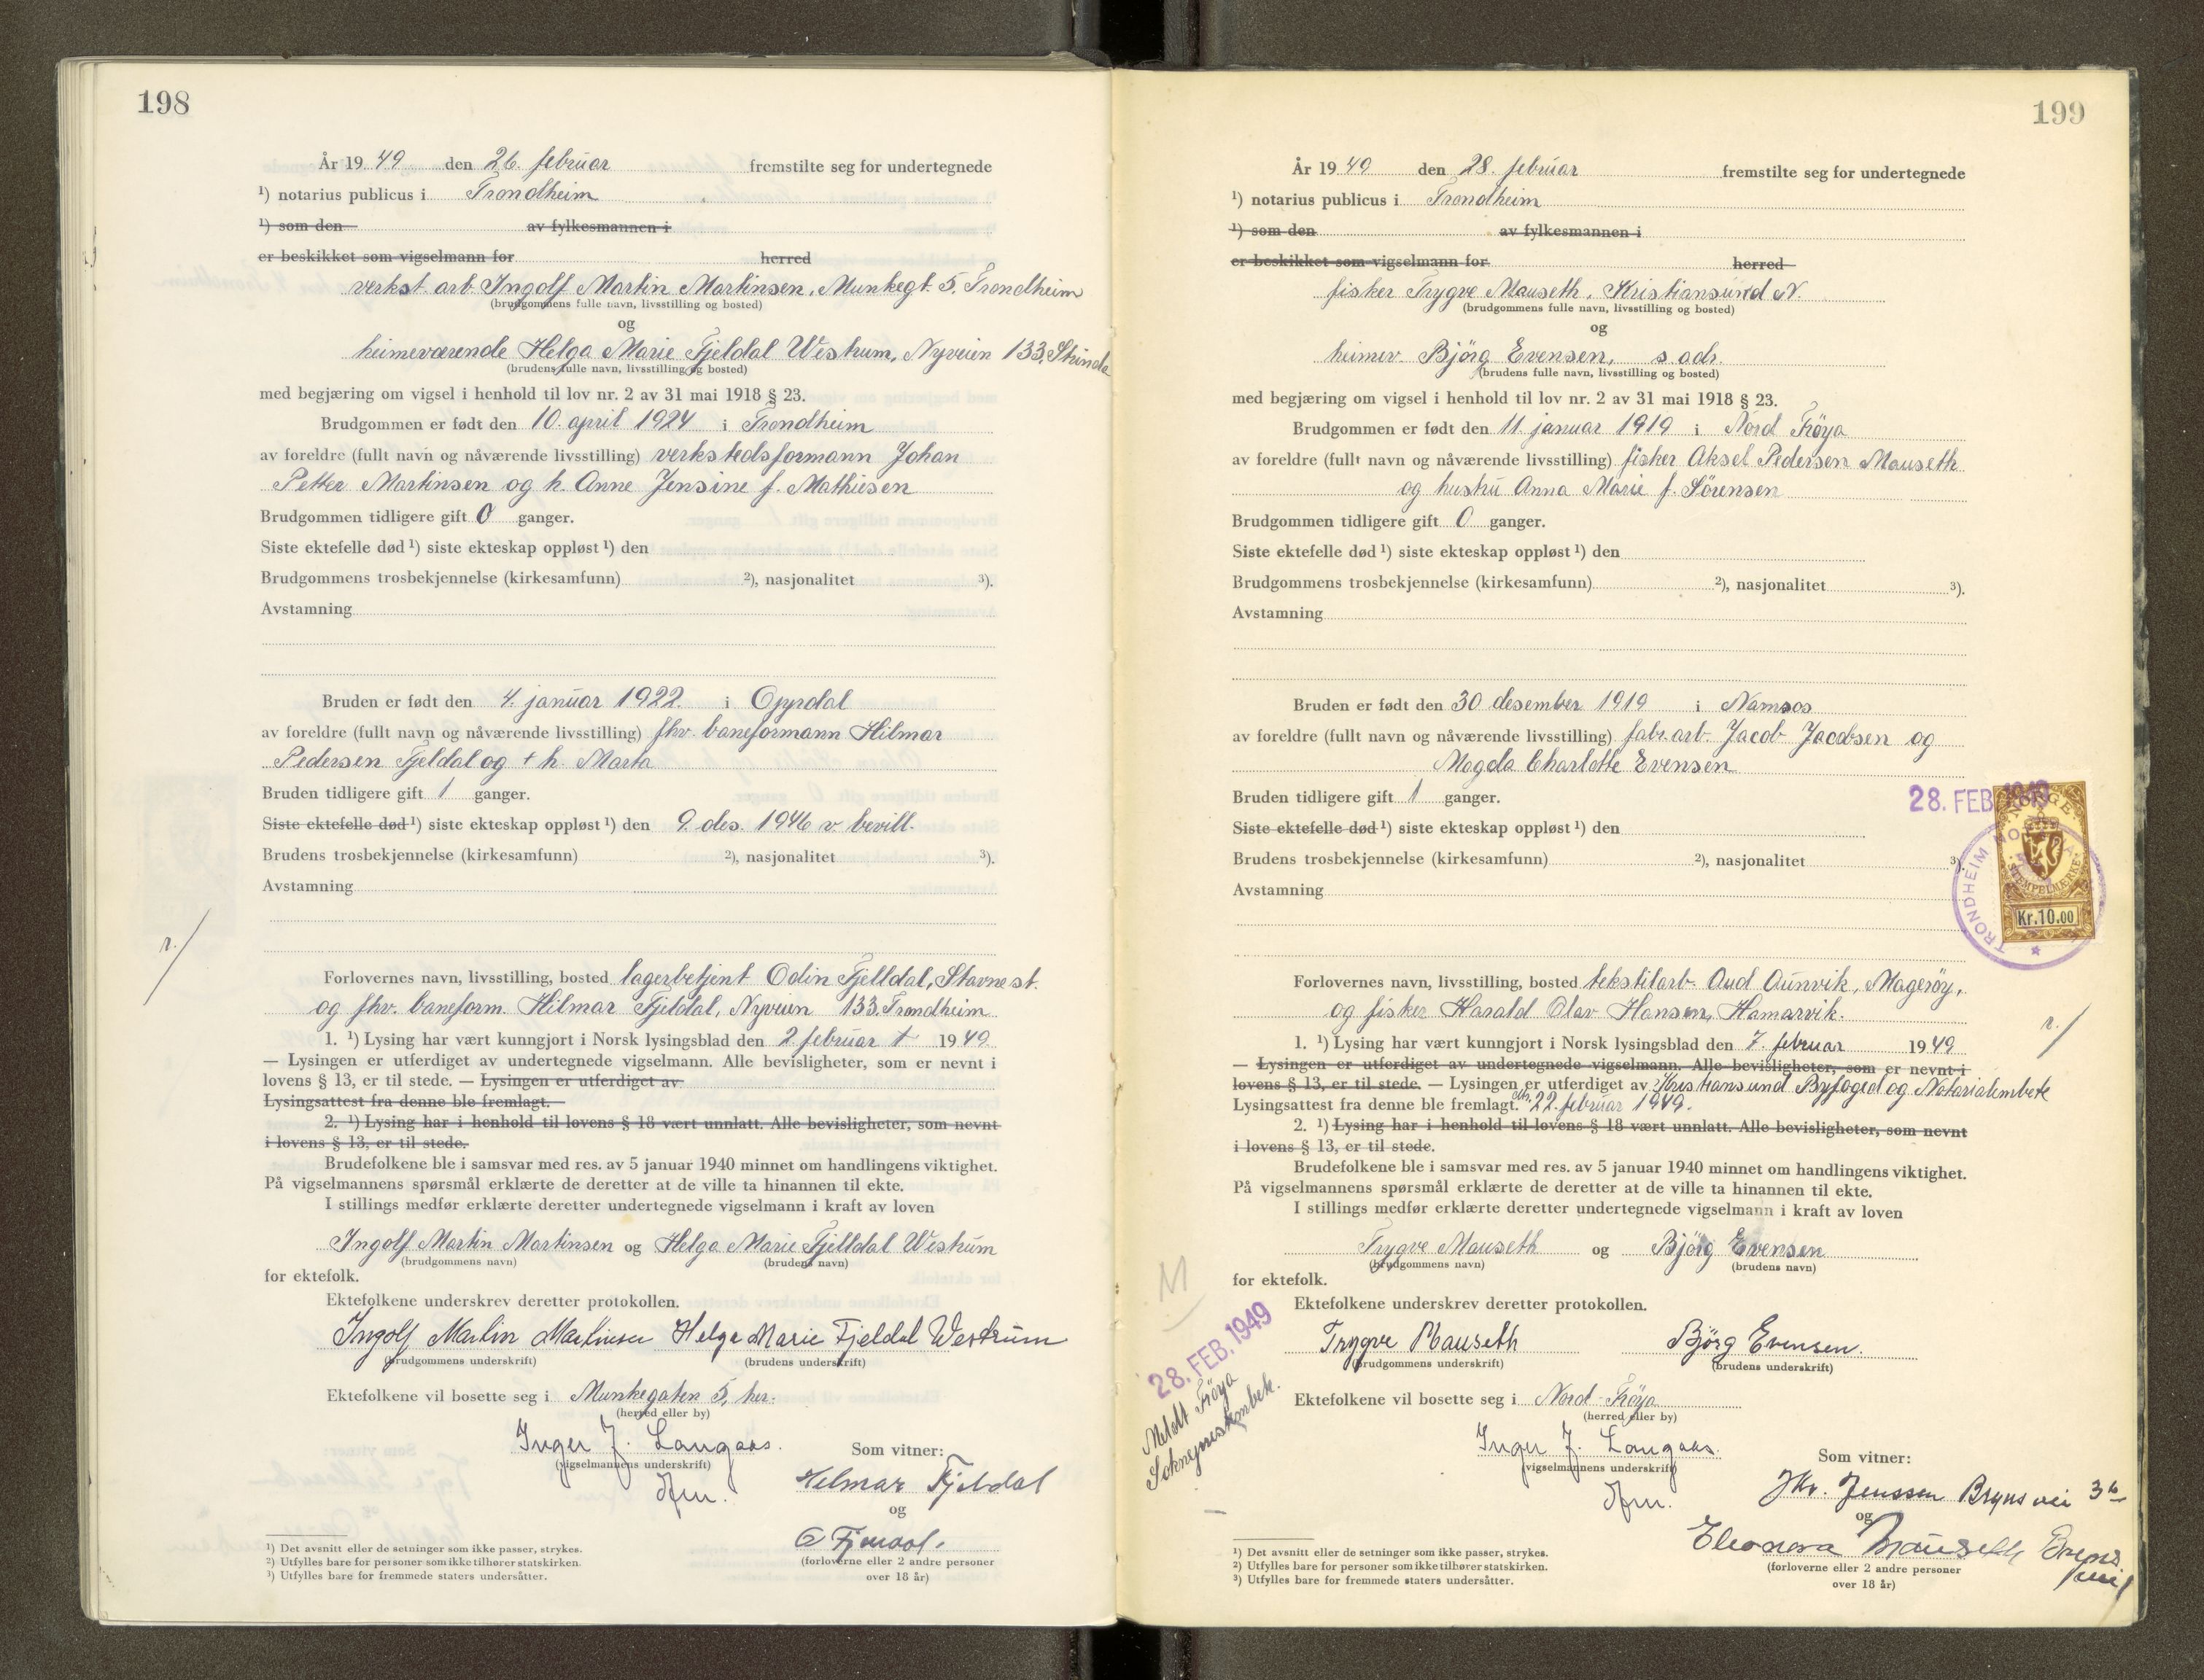 198
År 19 49 den 26. februar fremstilte seg for undertegnede
¹) notarius publicus i Trondheim
¹) som den av fylkesmannen i
er beskikket som vigselmann for herred
verkst. arb. Ingolf Martin Martinsen, Munkegt. 5, Trondheim
(brudgommens fulle navn, livsstilling og bosted)
og
heimeværende Helga Marie Fjeldal Westrum, Nyveien 133, Strinda
(brudens fulle navn, livsstilling og bosted)
med begjæring om vigsel i henhold til lov nr. 2 av 31 mai 1918 § 23.
Brudgommen er født den 10. april 1924 i Trondheim
av foreldre (fullt navn og nåværende livsstilling) verkstedsformann Johan
Petter Martinsen og h. Anne Jensine f. Mathiesen
Brudgommen tidligere gift 0 ganger.
Siste ektefelle død ¹) siste ekteskap oppløst ¹) den
Brudgommens trosbekjennelse (kirkesamfunn) ²), nasjonalitet ³).
Avstamning
Bruden er født den 4. januar 1922. i Oppdal
av foreldre (fullt navn og nåværende livsstilling) fhv. baneformann Hilmar
Pedersen Fjeldal og † h. Marta
Bruden tidligere gift 1 ganger.
Siste ektefelle død ¹) siste ekteskap oppløst ¹) den 9. des. 1946 v. bevill.
Brudens trosbekjennelse (kirkesamfunn) ²), nasjonalitet ³).
Avstamning
r./
Forlovernes navn, livsstilling, bosted lagerbetjent Odin Fjelldal, Stavne st.
og fhv. baneform. Hilmar Fjeldal, Nyveien 133, Trondheim
1. ¹) Lysing har vært kunngjort i Norsk lysingsblad den 2. februar 1949
— Lysingen er utferdiget av undertegnede vigselmann. Alle bevisligheter, som er nevnt i
lovens § 13, er til stede. — Lysingen er utferdiget av
Lysingsattest fra denne ble fremlagt. —
2. ¹) Lysing har i henhold til lovens § 18 vært unnlatt. Alle bevisligheter, som nevnt
i lovens § 13, er til stede.
Brudefolkene ble i samsvar med res. av 5 januar 1940 minnet om handlingens viktighet.
På vigselmannens spørsmål erklærte de deretter at de ville ta hinannen til ekte.
I stillings medfør erklærte deretter undertegnede vigselmann i kraft av loven
Ingolf Martin Martinsen og Helga Marie Fjelldal Westrum
(brudgommens navn) (brudens navn)
for ektefolk.
Ektefolkene underskrev deretter protokollen.
Ingolf Martin Martinsen Helga Marie Fjeldal Westrum
(brudgommens underskrift) (brudens underskrift)
Ektefolkene vil bosette seg i Munkegaten 5, her.
(herred eller by)
Inger J. Langaas.
(vigselmannens underskrift)
dfm.
Som vitner:
Hilmar Fjeldal
og
O Fjeldal.
(forloverne eller 2 andre personer
over 18 år)
¹) Det avsnitt eller de setninger som ikke passer, strykes.
²) Utfylles bare for personer som ikke tilhører statskirken.
³) Utfylles bare for fremmede staters undersåtter.
199
År 19 49 den 28. februar fremstilte seg for undertegnede
¹) notarius publicus i Trondheim
¹) som den av fylkesmannen i
er beskikket som vigselmann for herred
fisker Trygve Mauseth, Kristiansund N.
(brudgommens fulle navn, livsstilling og bosted)
og
heimev. Björg Evensen, s. adr.
(brudens fulle navn, livsstilling og bosted)
med begjæring om vigsel i henhold til lov nr. 2 av 31 mai 1918 § 23.
Brudgommen er født den 11. januar 1919 i Nord Fröya
av foreldre (fullt navn og nåværende livsstilling) fisker Aksel Pedersen Mauseth
og hustru Anna Marie f. Sörensen
Brudgommen tidligere gift 0 ganger.
Siste ektefelle død ¹) siste ekteskap oppløst ¹) den
Brudgommens trosbekjennelse (kirkesamfunn) ²), nasjonalitet ³).
Avstamning
Bruden er født den 30 desember 1919 i Namsos
av foreldre (fullt navn og nåværende livsstilling) fabr. arb. Jacob Jacobsen og
Magda Charlotte Evensen
Bruden tidligere gift 1 ganger.
28. FEB. 1949
NORGE
STEMPELMERKE
Kr. 10.00
TRONDHEIM
Siste ektefelle død ¹) siste ekteskap oppløst ¹) den
Brudens trosbekjennelse (kirkesamfunn) ²), nasjonalitet ³).
Avstamning
Forlovernes navn, livsstilling, bosted tekstilarb. Aud Aunvik, Mageröy,
og fisker Harald Olav Hansen, Hamarvik.
r./
1. ¹) Lysing har vært kunngjort i Norsk lysingsblad den 7. februar 1949
— Lysingen er utferdiget av undertegnede vigselmann. Alle bevisligheter, som er nevnt i
lovens § 13, er til stede. — Lysingen er utferdiget av Kristiansund Byfoged og Notarialembete
Lysingsattest fra denne ble fremlagt. dat. 22. februar 1949.
2. ¹) Lysing har i henhold til lovens § 18 vært unnlatt. Alle bevisligheter, som nevnt
i lovens § 13, er til stede.
Brudefolkene ble i samsvar med res. av 5 januar 1940 minnet om handlingens viktighet.
På vigselmannens spørsmål erklærte de deretter at de ville ta hinannen til ekte.
I stillings medfør erklærte deretter undertegnede vigselmann i kraft av loven
Trygve Mauseth og Bjørg Evensen
(brudgommens navn) (brudens navn)
for ektefolk.
Ektefolkene underskrev deretter protokollen.
Trygve Mauseth Bjørg Evensen.
(brudgommens underskrift) (brudens underskrift)
M
28. FEB. 1949
Meldt Fröya
Sokneprestembet.
Ektefolkene vil bosette seg i Nord-Fröya
(herred eller by)
Inger J. Langaas.
(vigselmannens underskrift)
dfm.
Som vitner:
Jhr. Jenssen Brynsvei 3b
og
Eleonora Mauseth
(forloverne eller 2 andre personer
over 18 år)
¹) Det avsnitt eller de setninger som ikke passer, strykes.
²) Utfylles bare for personer som ikke tilhører statskirken.
³) Utfylles bare for fremmede staters undersåtter.